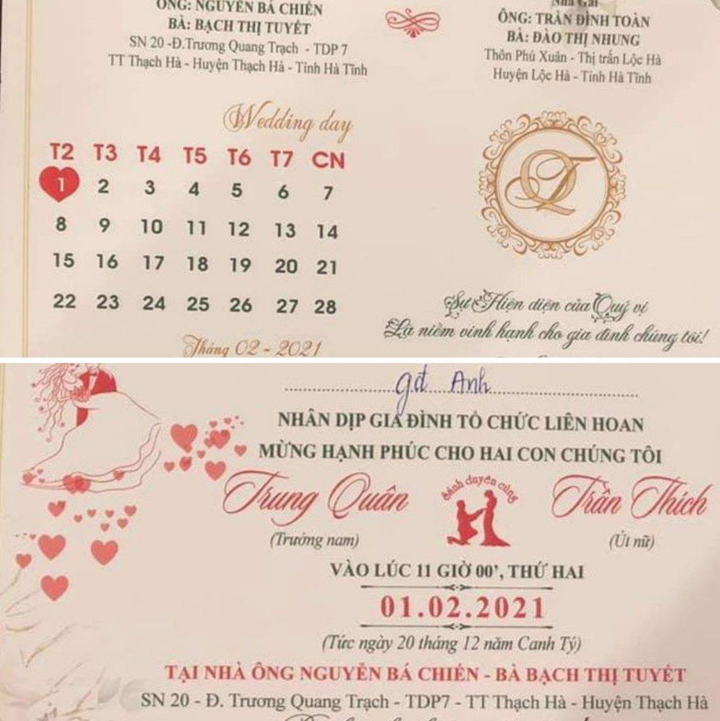 ÔNG: NGUYỄN BÁ CHIẾN
BÀ: BẠCH THỊ TUYẾT
SN 20 -Đ.Trương Quang Trạch - TDP 7
TT Thạch Hà - Huyện Thạch Hà - Tỉnh Hà Tĩnh
Nhà Gái
ÔNG: TRẦN ĐÌNH TOÀN
BÀ: ĐÀO THỊ NHUNG
Thôn Phú Xuân - Thị trấn Lộc Hà
Huyện Lộc Hà - Tỉnh Hà Tĩnh
Wedding day
T2 T3 T4 T5 T6 T7 CN
1 2 3 4 5 6 7
8 9 10 11 12 13 14
15 16 17 18 19 20 21
22 23 24 25 26 27 28
Tháng 02 - 2021
QT
Sự Hiện diện của Quý vị
Là niềm vinh hạnh cho gia đình chúng tôi!
gđ Anh
NHÂN DỊP GIA ĐÌNH TỔ CHỨC LIÊN HOAN
MỪNG HẠNH PHÚC CHO HAI CON CHÚNG TÔI
Trung Quân
(Trưởng nam)
Sánh duyên cùng
Trần Thích
(Út nữ)
VÀO LÚC 11 GIỜ 00', THỨ HAI
01.02.2021
(Tức ngày 20 tháng 12 năm Canh Tý)
TẠI NHÀ ÔNG NGUYỄN BÁ CHIẾN - BÀ BẠCH THỊ TUYẾT
SN 20 - Đ. Trương Quang Trạch - TDP7 - TT Thạch Hà - Huyện Thạch Hà